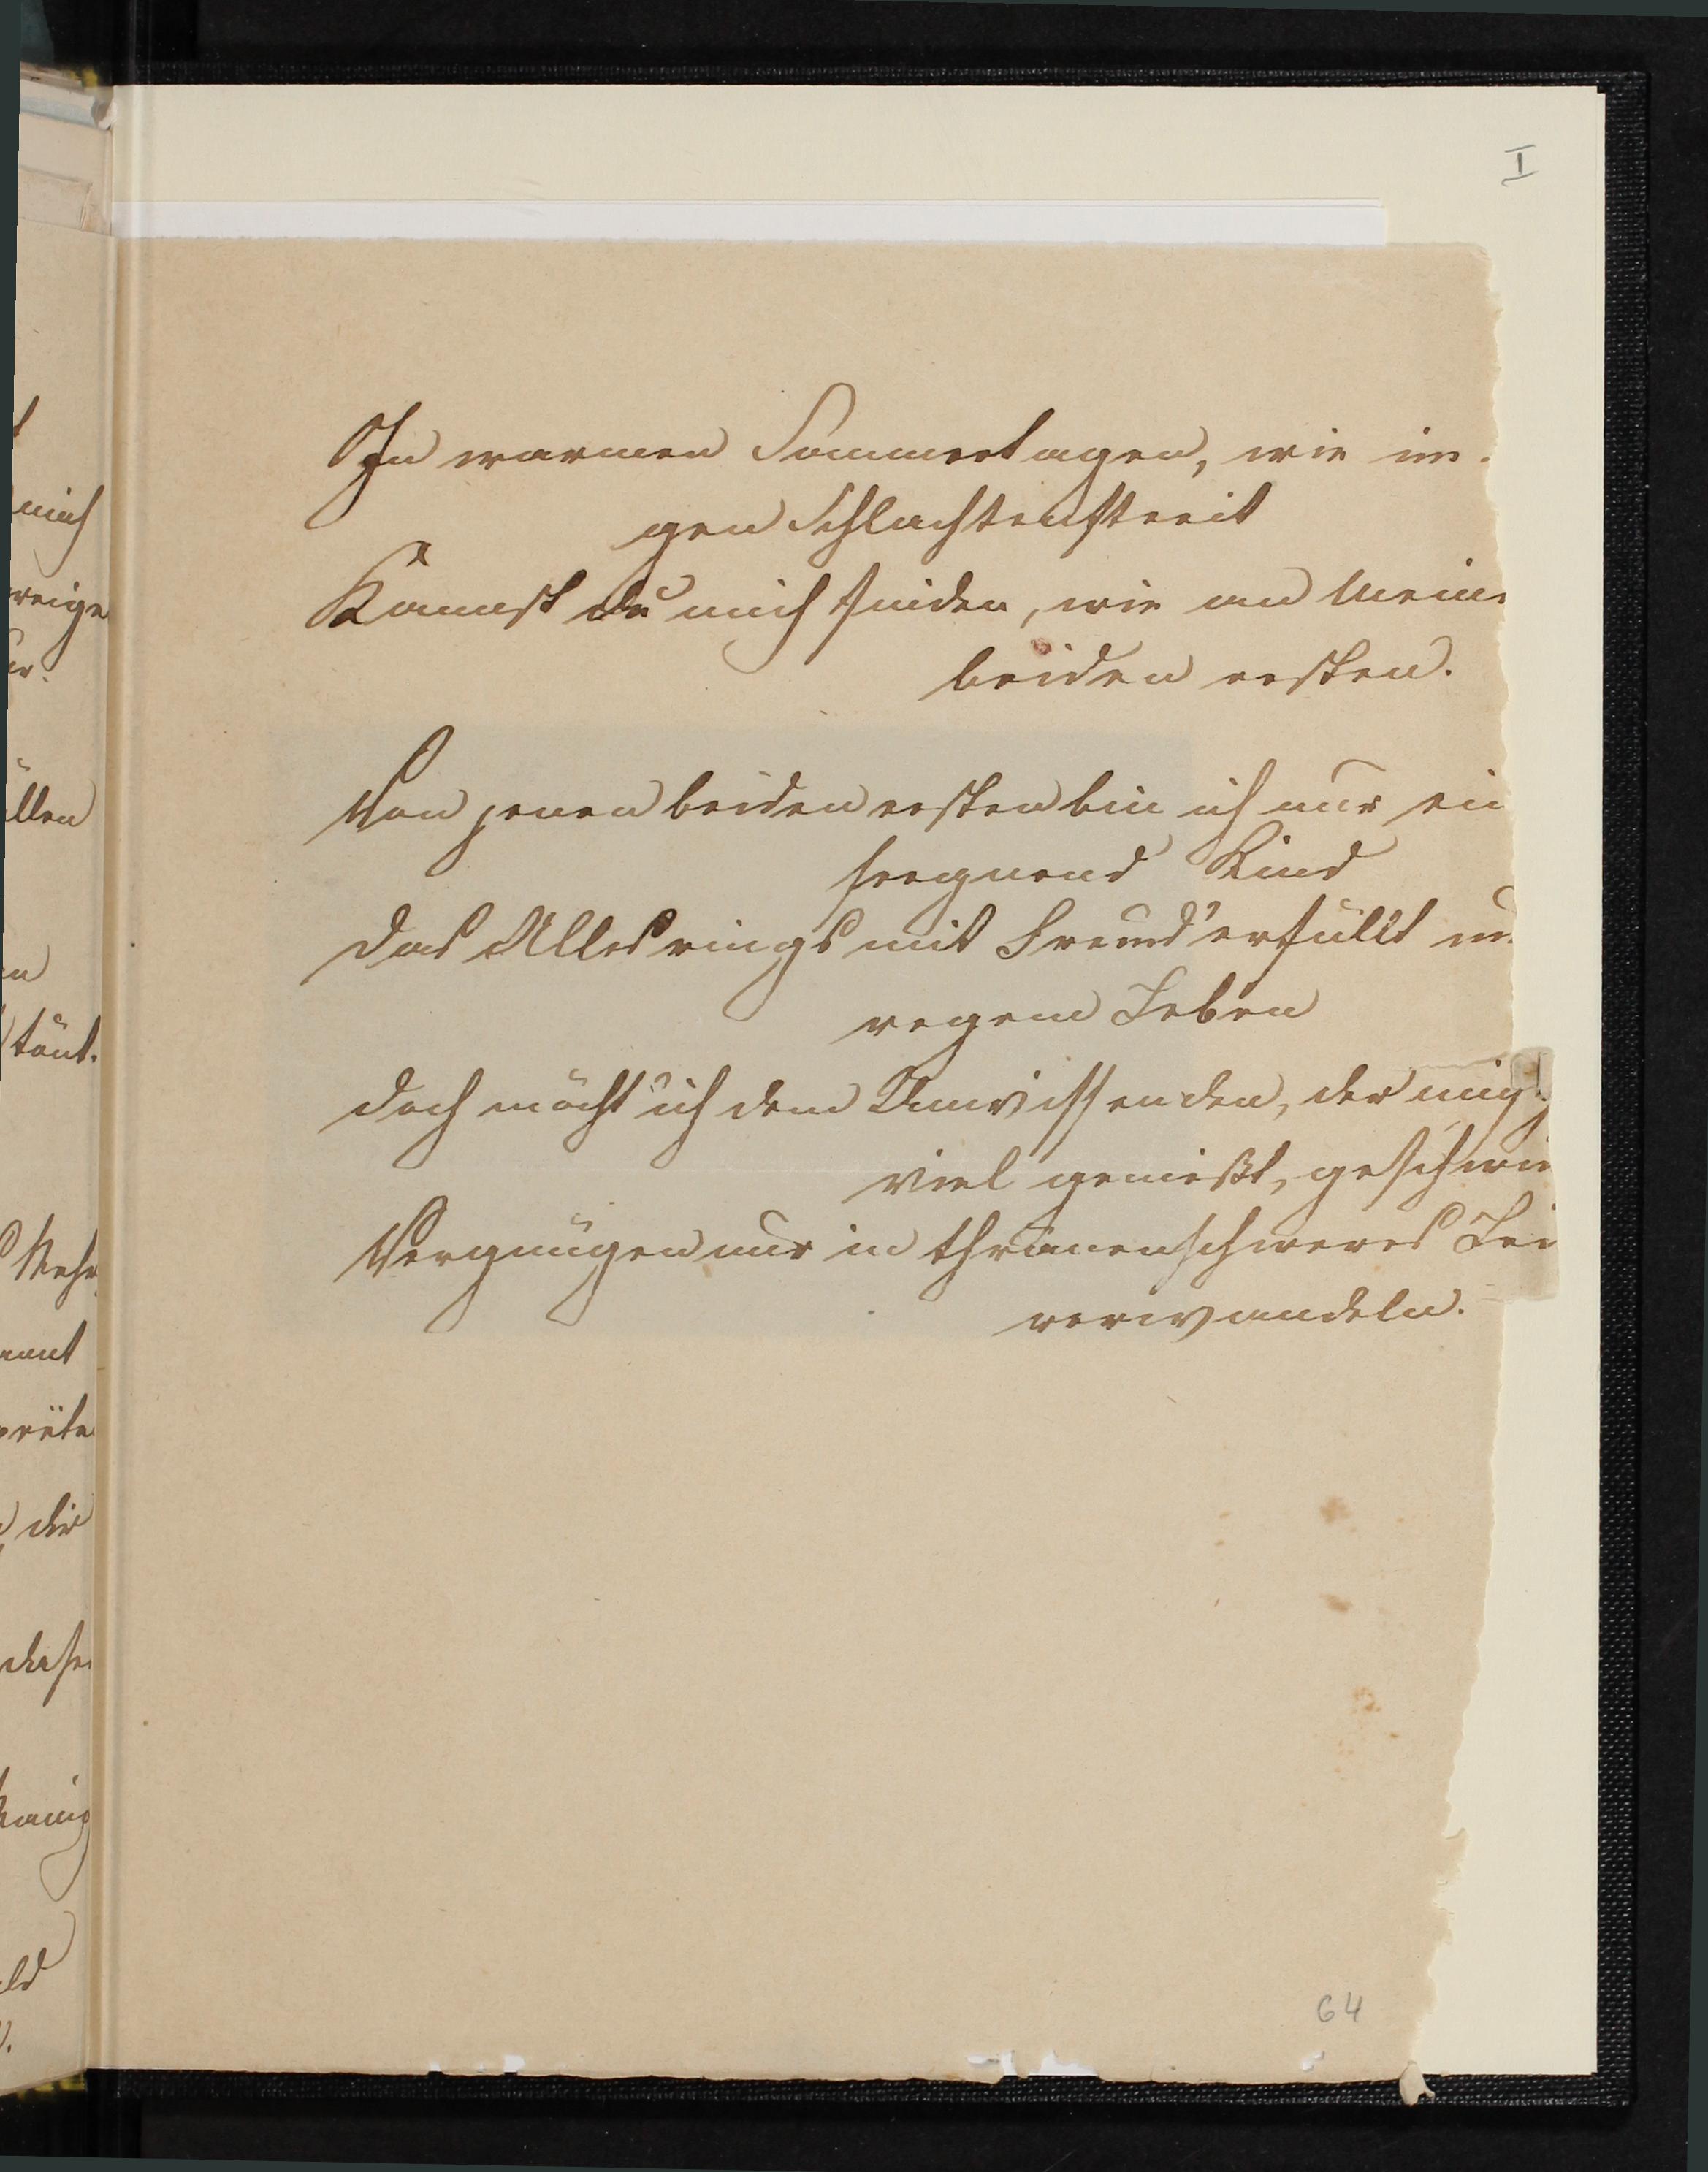 I
In warmen Sommertagen, wie im
gen Schlachtenstreit
Kannst du mich finden, wie an Meine
beiden ersten.
Von jenen beiden ersten bin ich nur ein
seegnend Kind
Das Alles rings mit Freud' erfüllt un
regem Leben
Doch möcht ich dem Unwissenden, der mich
viel genießt, geschwin
Vergnügen nur in thränenschweres Lei
verwandeln.
64